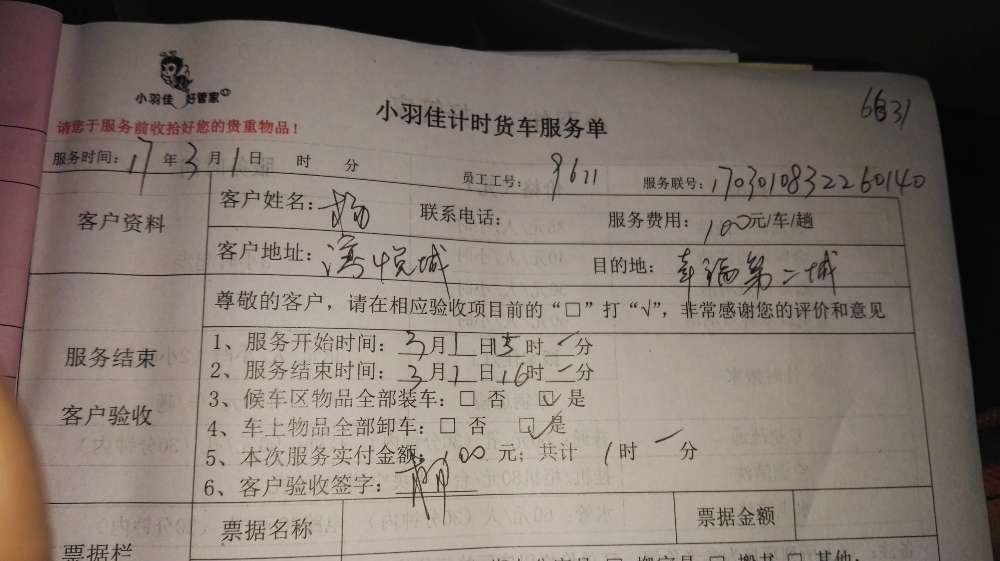 小羽佳 好管家
小羽佳计时货车服务单
请您于服务前收拾好您的贵重物品！
服务时间：17年3月1日 时 分 员工工号：9611 服务联号：1703010832260140
客户资料
客户姓名：杨 联系电话： 服务费用：100元/车/趟
客户地址：湾悦城 目的地：幸福第二城
尊敬的客户，请在相应验收项目前的“□”打“√”，非常感谢您的评价和意见
服务结束
客户验收
1、服务开始时间：3月1日15时－分
2、服务结束时间：3月1日16时－分
3、候车区物品全部装车：□ 否 ☑ 是
4、车上物品全部卸车：□ 否 ☑ 是
5、本次服务实付金额：100元；共计 1时 － 分
6、客户验收签字：杨
票据栏
票据名称 票据金额